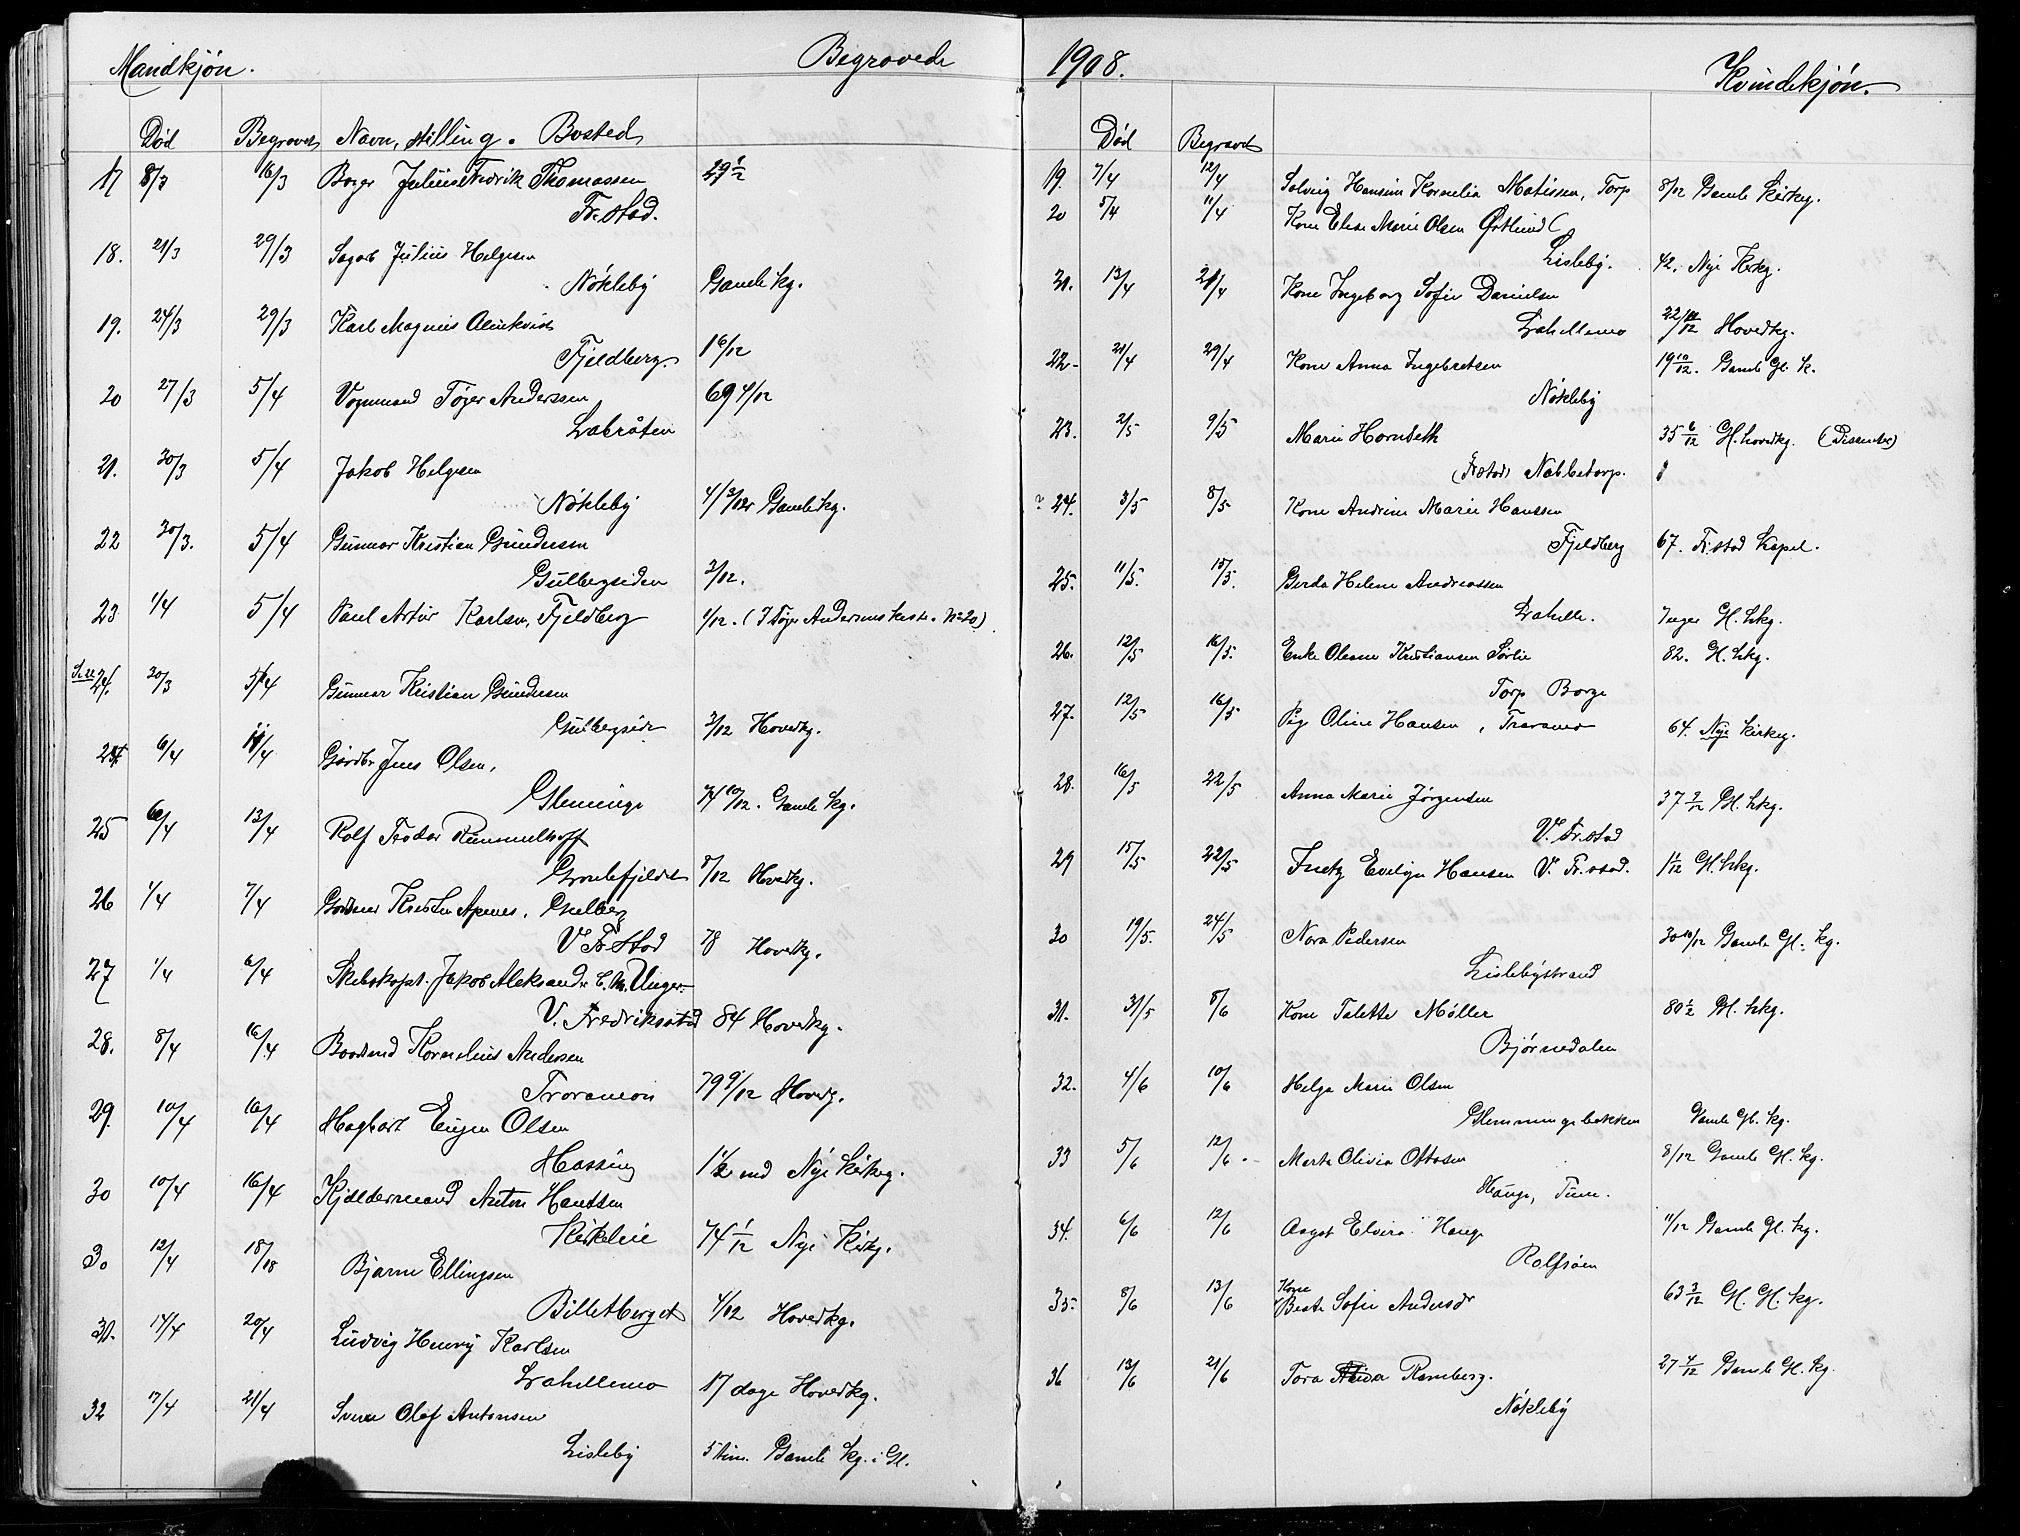 Mandkjön. Begravede
Död Begravet Navn, stilling. Bosted
17 8/3 16/3 Borger Julius Fredrik Thomassen 29 1/2
Fr.stad.
18. 21/3 29/3 Sagarb Julius Helgesen
Nökleby Gamle kg.
19. 24/3 29/3 Karl Magnus Almkvist
Fjeldberg. 1 6/12
20 27/3 5/4 Vognmand Töger Anderssen 69 4/12
Labråten
21. 30/3 5/4 Jakob Helgesen
Nökleby Gamle kg.
22 30/3. 5/4 Gunnar Kristian Gundersen
Gulbergsiden 3/12.
23 1/4 5/4 Paul Artur Karlsen, Fjeldberg 1/12. (I Töger Andersens kiste. No 20)
Se 22 24. 30/3 5/4 Gunnar Kristian Gundersen
Gulbergside 3/12 Hovedkg.
24 6/4 11/4 Gårdbr Jens Olsen,
Glemminge 74 10/12. Gamle kg.
25 6/4 13/4 Rolf Teodor Rummelhoff
8/12 Hovedkg.
26 1/4 7/4 Apenes,
V. Fr.Stad 78 Hovedkg.
27 1/4 6/4 Skibskapt. Jakob Aleksander C. M. Unger
V. Fredrikstad 84 Hovedkg.
28. 8/4 16/4 Kornelius Andersen
79 9/12 Hovedkg.
29. 10/4 16/4 Hagbart Eugen Olsen
Hassing 1 1/2 md Nye Kirkeg.
30 10/4 16/4 Kjeldermand Anton Hanssen
74 1/12 Nye Kirkg.
30 12/4 18/18 Bjarne Ellingsen
Billetberget 4/12 Hovedkg.
31. 14/4 20/4 Ludvig Henry Karlsen
Lahellemo 17 dage Hovedkg.
32 17/4 21/4 Sverre Olaf Antonsen
Lisleby 5 tim. Gamle kg. i Gl.
1908. Kvindekjön.
Död Begravet
19. 7/4 12/4 Solveig Hansine Kornelia Matissen, Torp 8/12 Gamle Kirkeg.
20 5/4 11/4 Kone Elise Marie Olsen Östlund (
Lisleby. 42. Nye Kirkg.
21. 13/4 21/4 Kone Ingeborg Sofie Danielsen
Lahellemo Hovedkg.
22. 21/4 29/4 Kone Anna Ingebretsen 19 10/12. Gamle Gl. K.
Nökleby
23. 2/5 9/5 Marie Hornseth 35 6/12 Gl. hovedkg. (Dissenter)
(Fr.stad) Nabbetorp.
? 24. 3/5 8/5 Kone Andrine Marie Hanssen
Fjeldberg 67. Fr.stad Kapel.
25. 11/5. 15/5. Gerda Helene Andreassen
Lahelle. Gl. hkg.
26. 12/5 16/5. Enke Oleane Kristiansen Sörlie 82. Gl. hkg.
Torp Borge
27. 12/5 16/5 Pige Oline Hansen, Traramo 64. Nye Kirkeg.
28. 16/5 22/5 Anna Marie Jörgensen 37 2/12 Gl. hkg.
V. Fr.stad
29 15/5 22/5 Evelyn Hansen V. Fr.stad. 1 1/12 Gl. hkg.
30 19/5. 24/5 Nora Pedersen 30 10/12 Gamle Gl. kg.
Lislebystrand
31. 31/5 8/6 Kone Talette Möller 80 1/2 Gl. hkg.
Björnedalen
32. 4/6 10/6 Helga Marie Olsen
Glemmingebakken Gamle Gl. kg.
33 5/6 12/6. Marta Olivia Ottosen 8/12 Gamle Gl. kg.
Hauge, Tune.
34. 6/6 12/6 Aagot Elvira Hauge 11/12 Gamle Gl. kg.
Rolfsöen
35. 8/6 13/6 Kone Berte Sofie Andersdr 63 3/12 Gl. Gl. kg.
36 13/6 21/6 Tora Ramberg. 27 4/12 Gamle Gl. kg.
Nökleby